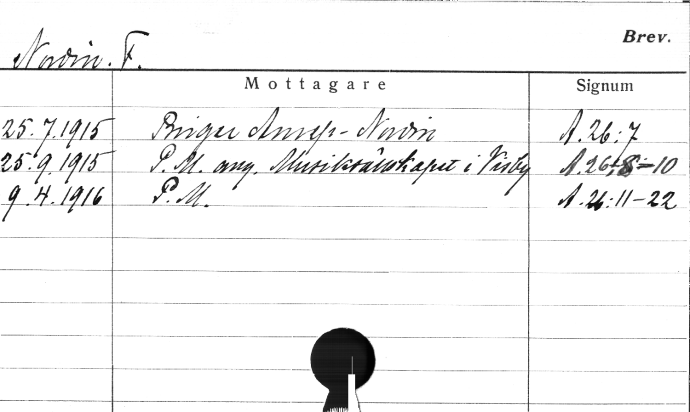 Brev.
Nordin. F.
Mottagare Signum
25.7.1915 Birger Anrep-Nordin A.26:7
25.9.1915 P.M. ang. Musiksällskapet i Visby A.26:8-10
9.4.1916 P.M. A.26:11-22